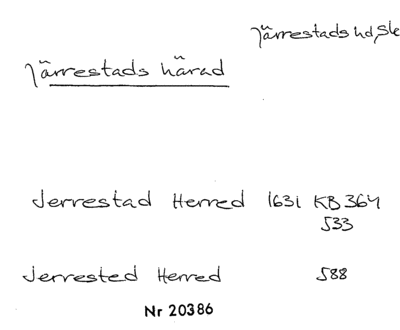 Järrestads hd, Sk
Järrestads härad
Jerrestad Herred 1631 KB 364
533
Jerrested Herred 588
Nr 20386